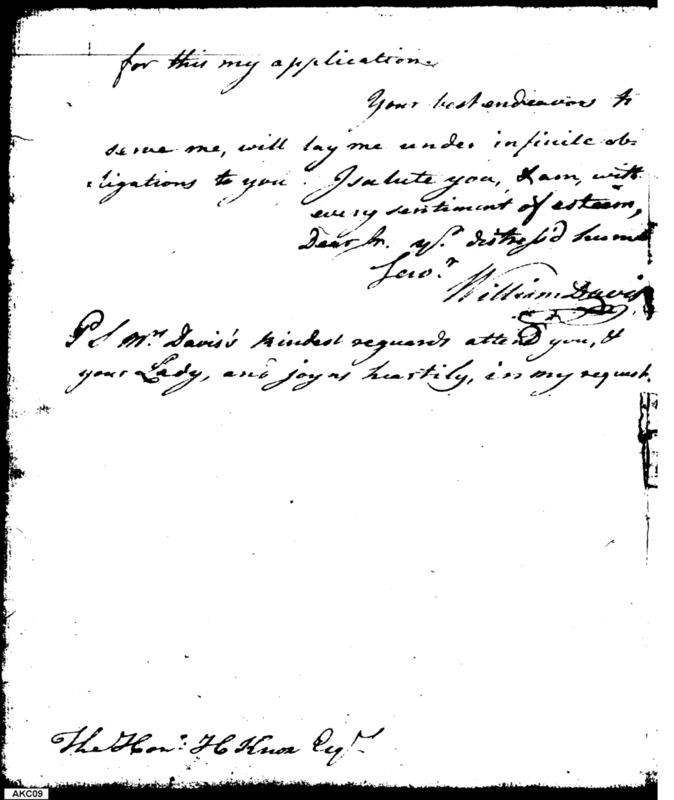 for this my application.
Your best endeavors to
serve me, will lay me under infinite ob-
ligations to you. I salute you, & am, with
every sentiment of esteem,
Dear Sr. yr. distress'd humb
Servt.
William Davis
P S Mrs Davis's kindest reguards attend you, &
your Lady, and joyns heartily, in my request.
The Honl: H Knox Esqr.
AKC09